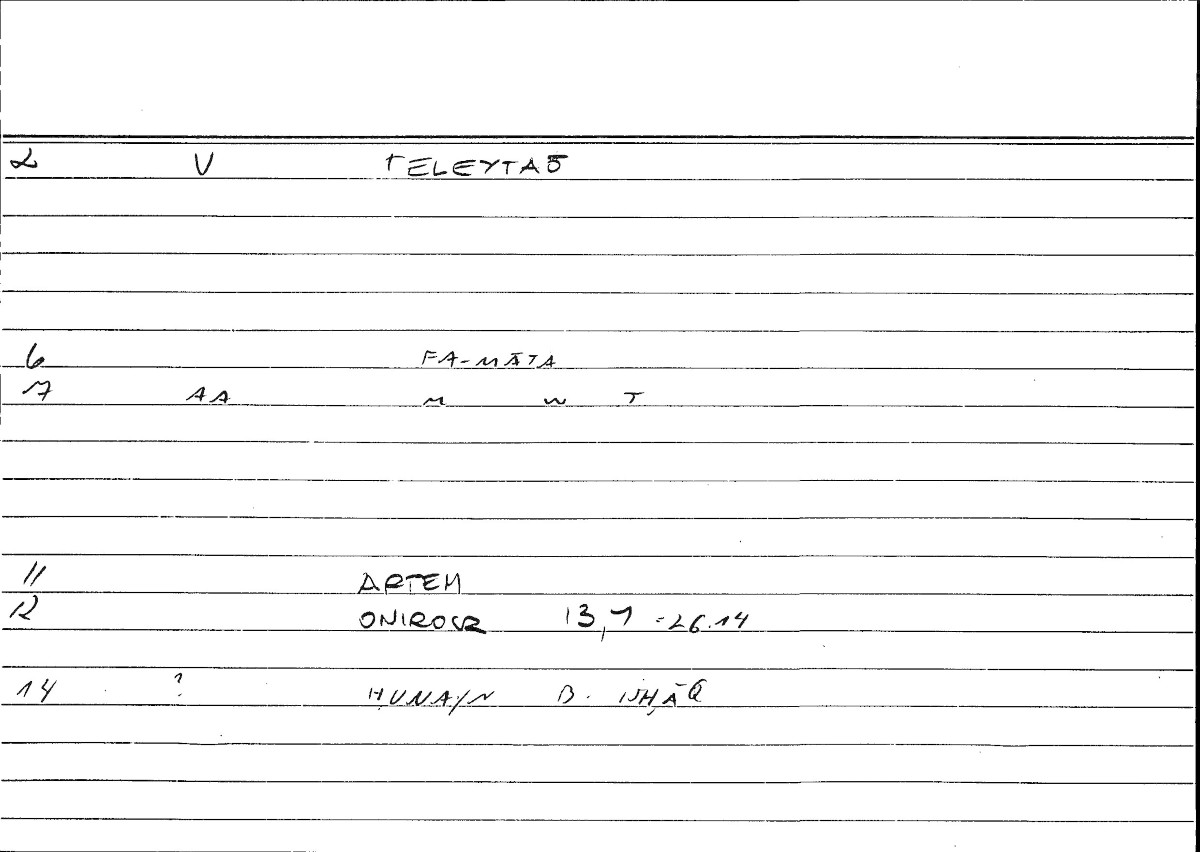 2 V TELEYTAŌ
6 FA-MĀTA
7 AA M W T
11 ARTEM
12 ONIROCR 13,7 -26.14
14 ? ḤUNAYN B. ISḤĀQ